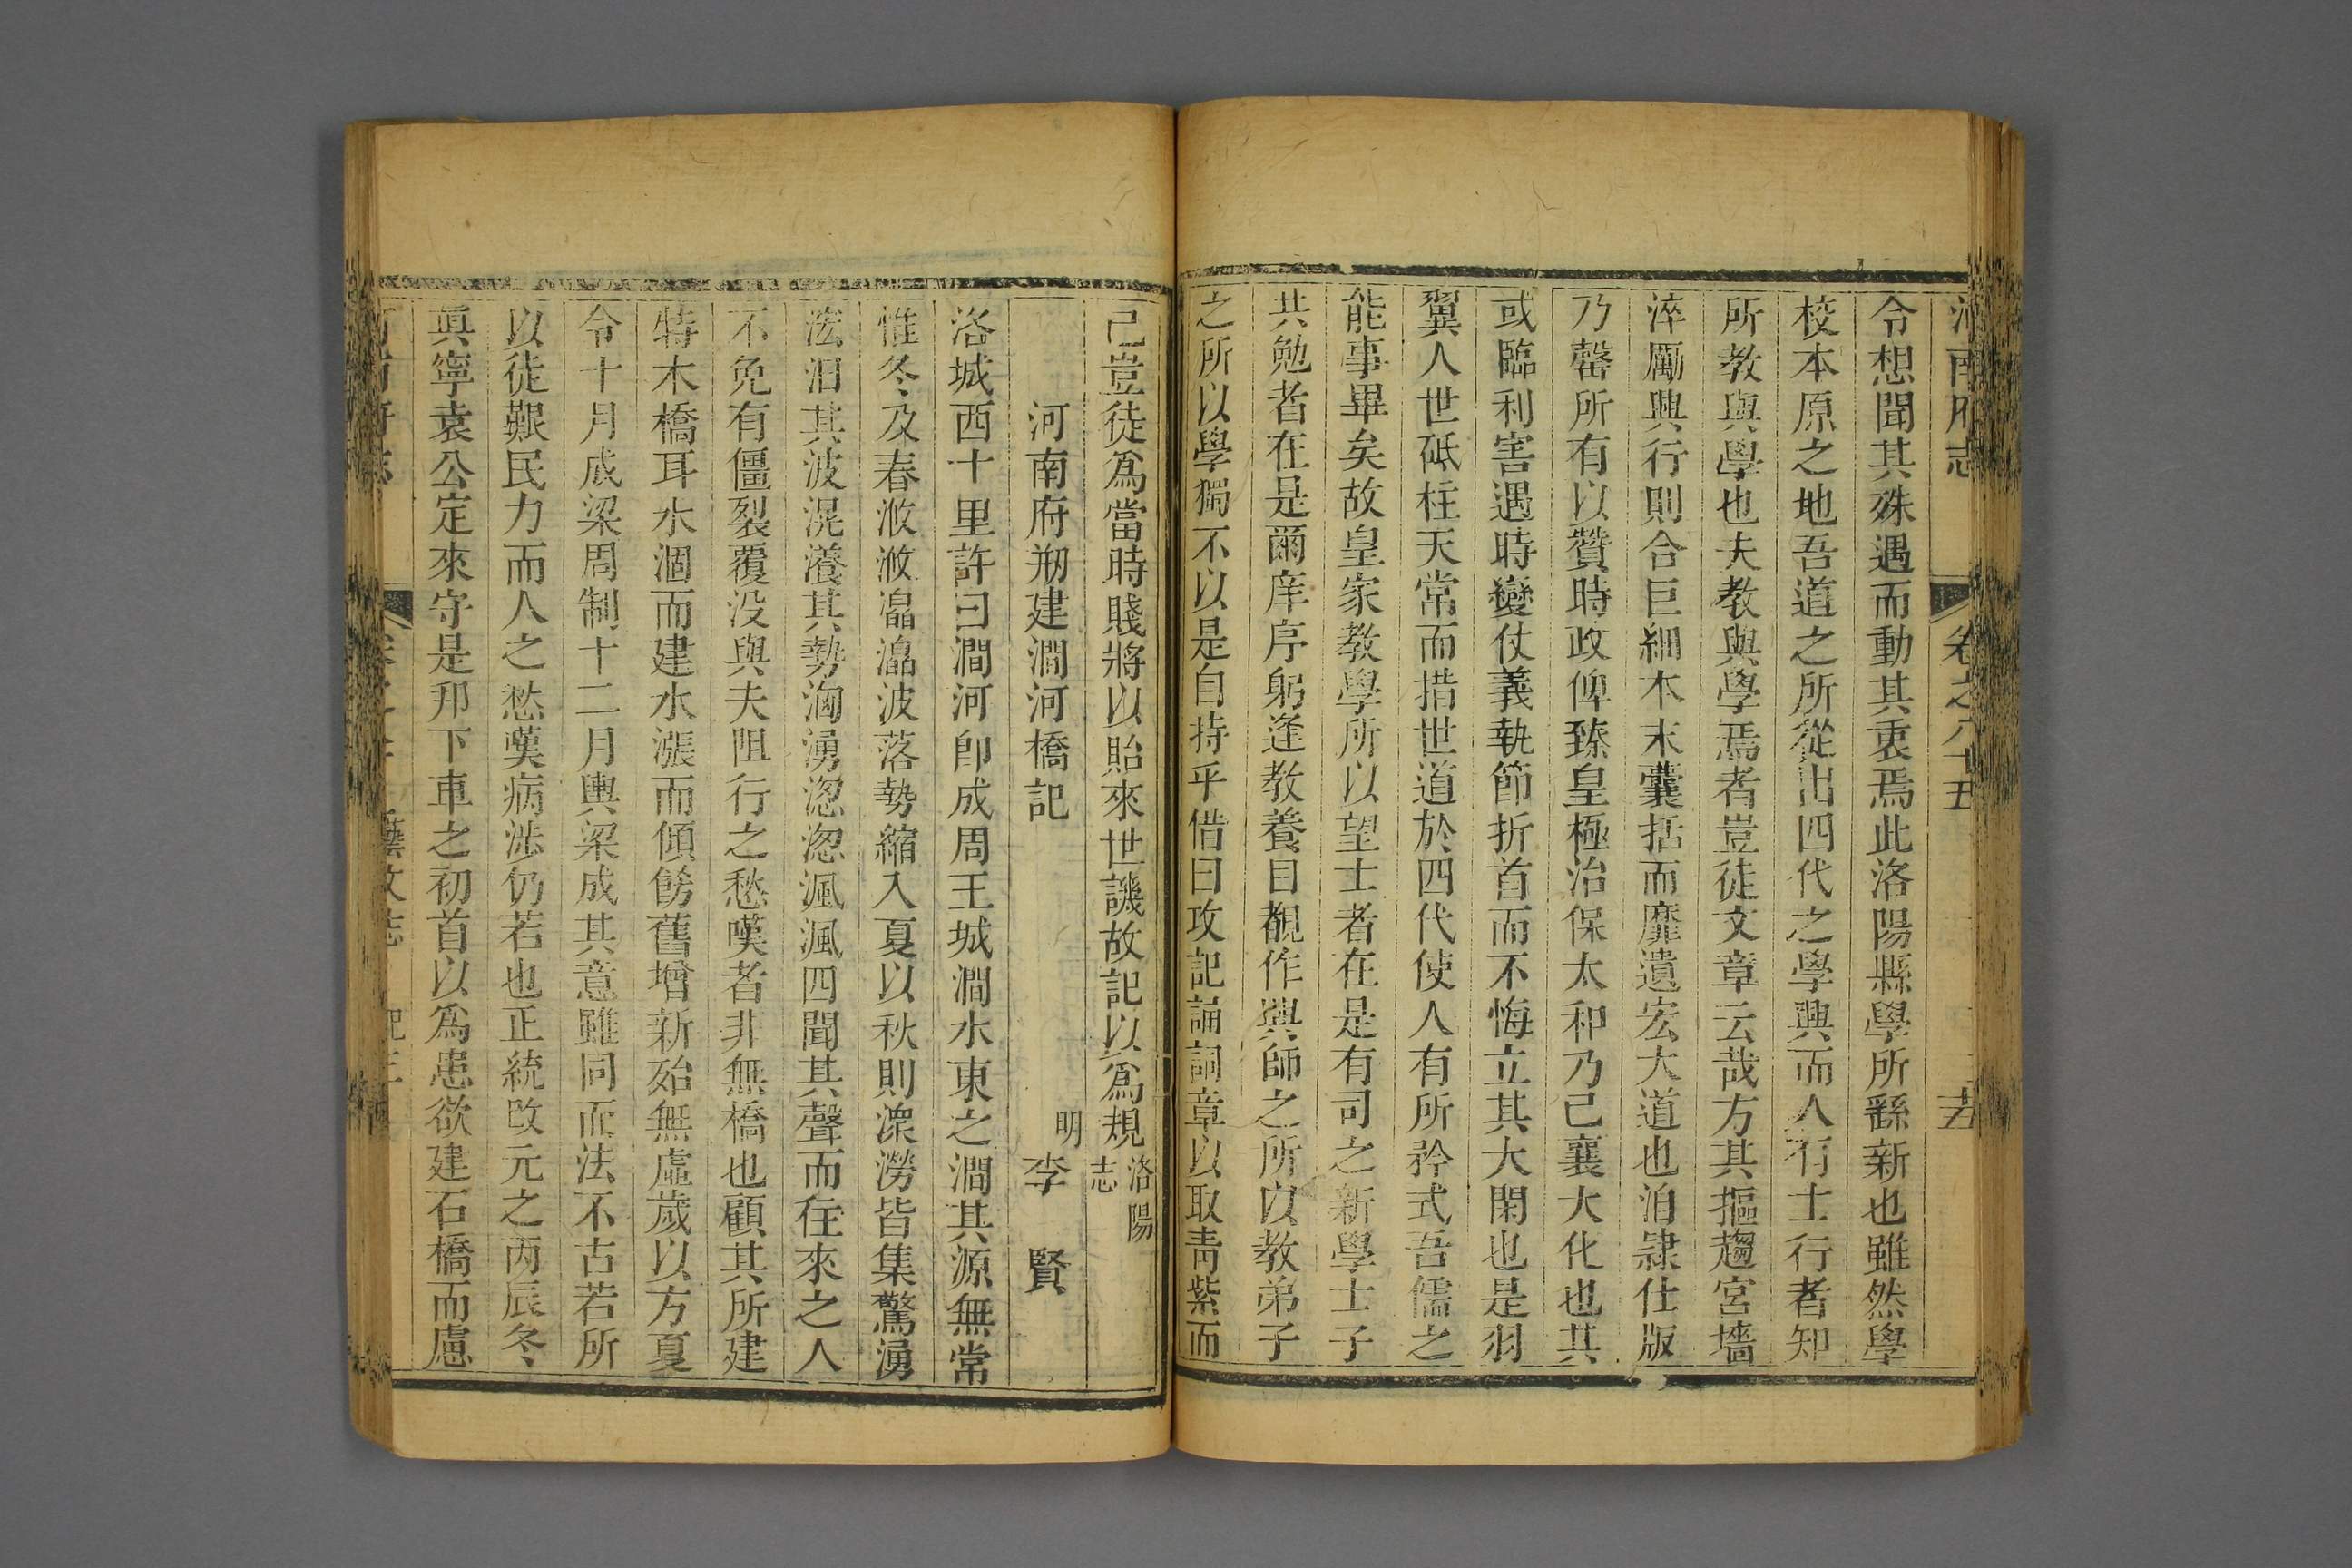 河南府志 卷之八十五
令想聞其殊遇而動其衷焉此洛陽縣學所繇新也雖然學
校本原之地吾道之所從出四代之學興而人有士行者知
所教與學也夫教與學焉者豈徒文章云哉方其摳趨宮墻
淬厲興行則合巨細本末囊括而靡遺宏大道也洎隷仕版
乃罄所有以贊時政俾臻皇極治保太和乃己襄大化也其
或臨利害遇時變仗義執節折首而不悔立其大閑也是羽
翼人世砥柱天常而措世道於四代使人有所矜式吾儒之
能事畢矣故皇家教學所以望士者在是有司之新學士子
共勉者在是爾庠序躬逢教養目覩作興師之所以教弟子
之所以學獨不以是自持乎借曰攻記誦詞章以取青紫而
己豈徒爲當時賤將以貽來世譏故記以爲規洛陽志
河南府剙建澗河橋記 明李賢
洛城西十里許曰澗河卽成周王城澗水東之澗其源無常
惟冬及春浟浟灖灖波落勢縮入夏以秋則潦澇皆集驚湧
浤汩其波滉瀁其勢洶湧淴淴渢渢四聞其聲而徃來之人
不免有僵裂覆没與夫阻行之愁嘆者非無橋也顧其所建
特木橋耳水涸而建水漲而傾餝舊增新殆無虛歲以方夏
令十月成梁周制十二月輿梁成其意雖同而法不古若所
以徒艱民力而人之愁嘆病涉仍若也正統改元之丙辰冬
眞寧袁公定來守是邦下車之初首以爲患欲建石橋而慮
藝文志